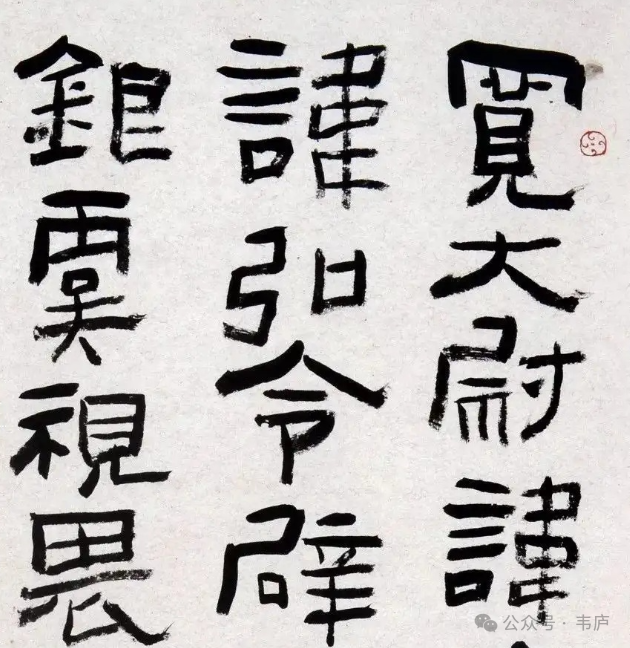 寬大尉諱
諱弘令辟
鉅虞視畏
公众号·韦庐